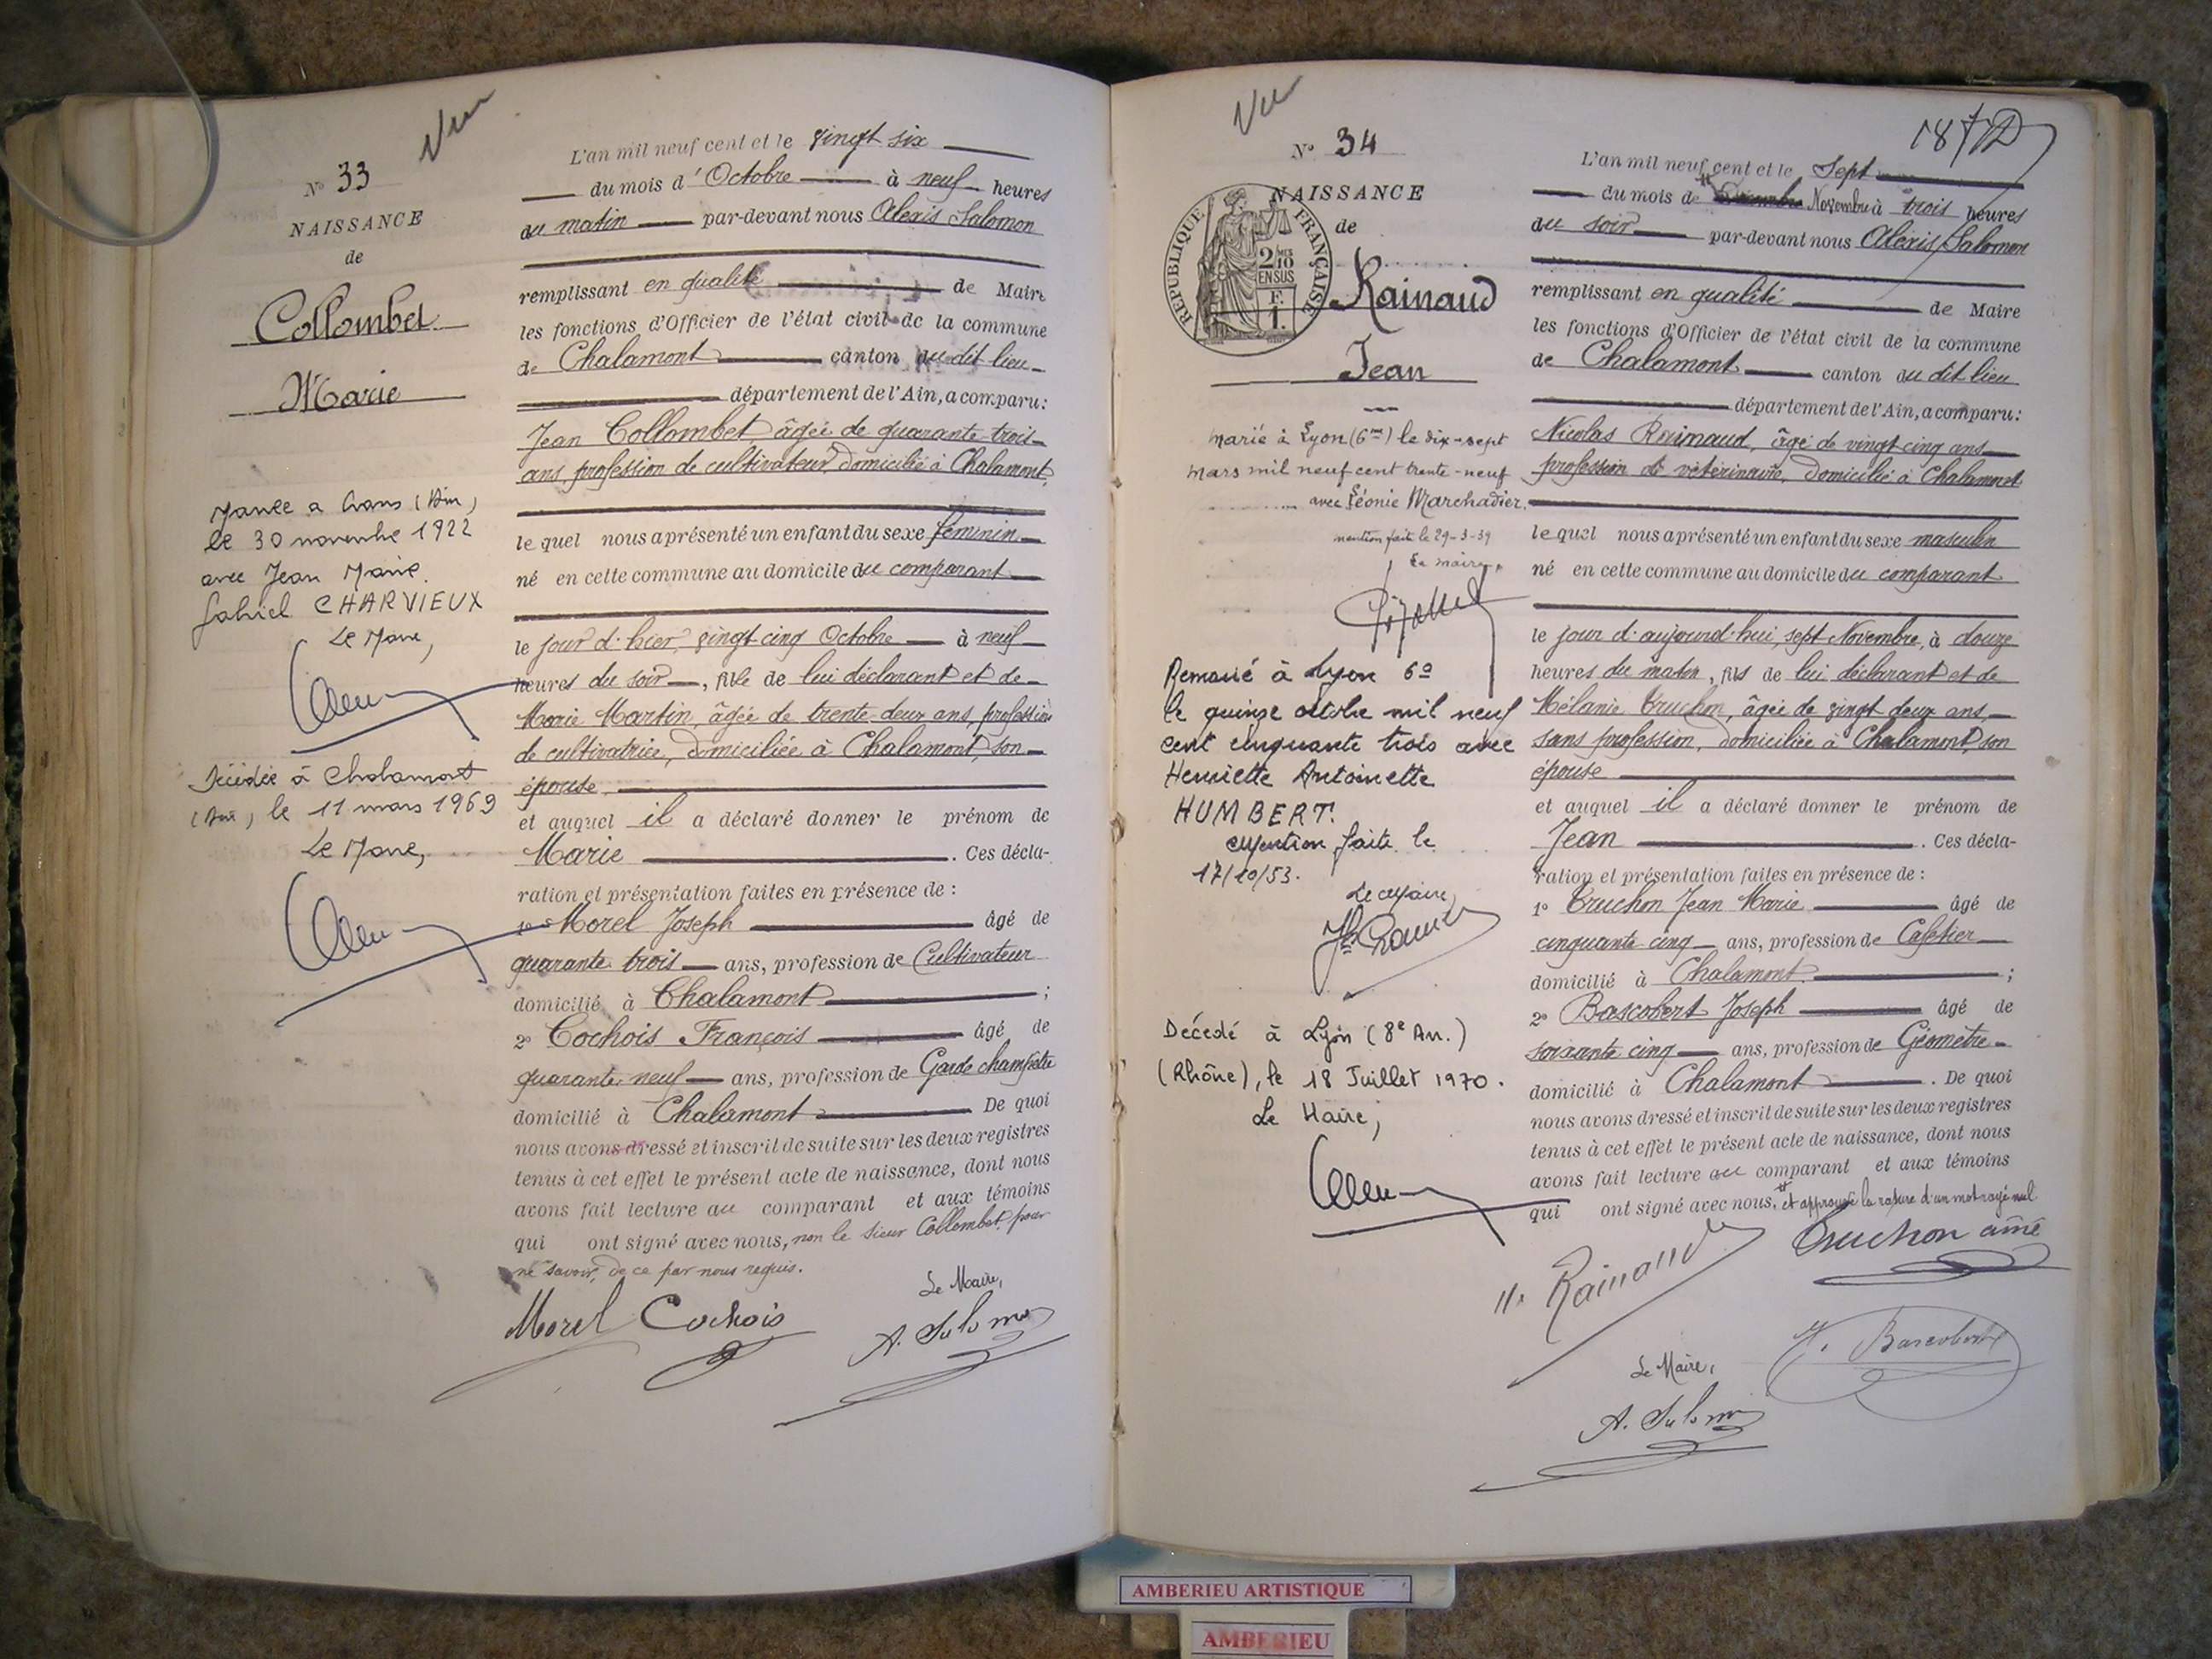 Vu
N° 33
NAISSANCE
de
Collombet
Marie
Mariée a Crans (Ain)
le 30 novembre 1922
avec Jean Marie
Gabriel CHARVIEUX
Le Maire,
Décédée à Chalamont
(Ain) le 11 mars 1969
Le Maire,
L'an mil neuf cent et le vingt six
du mois d'Octobre à neuf heures
du matin par-devant nous Alexis Salomon
remplissant en qualité de Maire
les fonctions d'Officier de l'état civil de la commune
de Chalamont canton du dit lieu
département de l'Ain, a comparu:
Jean Collombet, âgée de quarante-trois
ans, profession de cultivateur, domicilié à Chalamont,
le quel nous a présenté un enfant du sexe féminin
né en cette commune au domicile du comparant
le jour d'hier, vingt cinq Octobre à neuf
heures du soir, fille de lui déclarant et de
Marie Martin, âgée de trente-deux ans, profession
de cultivatrice, domiciliée à Chalamont, son
épouse
et auquel il a déclaré donner le prénom de
Marie . Ces décla-
ration et présentation faites en présence de :
1° Morel Joseph âgé de
quarante trois ans, profession de Cultivateur
domicilié à Chalamont ;
2° Cochois François âgé de
quarante neuf ans, profession de Garde champêtre
domicilié à Chalamont De quoi
nous avons dressé et inscrit de suite sur les deux registres
tenus à cet effet le présent acte de naissance, dont nous
avons fait lecture au comparant et aux témoins
qui ont signé avec nous, non le sieur Collombet pour
ne savoir, de ce par nous requis.
Le Maire,
Morel Cochois A. Salomon
Vu
N° 34
NAISSANCE
de
REPUBLIQUE FRANÇAISE
2/10 EN SUS
F.
1.
Rainaud
Jean
marié à Lyon (6me) le dix-sept
mars mil neuf cent trente-neuf
avec Léonie Marchadier.
mention faite le 29-3-39
Le maire,
Remarié à Lyon 6e
le quinze octobre mil neuf
cent cinquante trois avec
Henriette Antoinette
HUMBERT.
Mention faite le
17/10/53.
Le Maire,
Décédé à Lyon (8e An.)
(Rhône), le 18 Juillet 1970.
Le Maire,
L'an mil neuf cent et le Sept
du mois de Novembre à trois heures
du soir par-devant nous Alexis Salomon
remplissant en qualité de Maire
les fonctions d'Officier de l'état civil de la commune
de Chalamont canton du dit lieu
département de l'Ain, a comparu:
Nicolas Rainaud, âgé de vingt cinq ans
profession de vétérinaire, domicilié à Chalamont
le quel nous a présenté un enfant du sexe masculin
né en cette commune au domicile du comparant
le jour d'aujourd'hui, sept Novembre, à douze
heures du matin, fils de lui déclarant et de
Mélanie Truchon, âgée de vingt deux ans,
sans profession, domiciliée à Chalamont, son
épouse
et auquel il a déclaré donner le prénom de
Jean . Ces décla-
ration et présentation faites en présence de :
1° Truchon Jean Marie âgé de
cinquante cinq ans, profession de Cafetier
domicilié à Chalamont ;
2° Bascobert Joseph âgé de
soixante cinq ans, profession de Géomètre
domicilié à Chalamont . De quoi
nous avons dressé et inscrit de suite sur les deux registres
tenus à cet effet le présent acte de naissance, dont nous
avons fait lecture au comparant et aux témoins
qui ont signé avec nous, et approuvé la rature d'un mot rayé nul
N. Rainaud Truchon ainé
Le Maire,
A. Salomon
Bascobert
AMBERIEU ARTISTIQUE
AMBERIEU